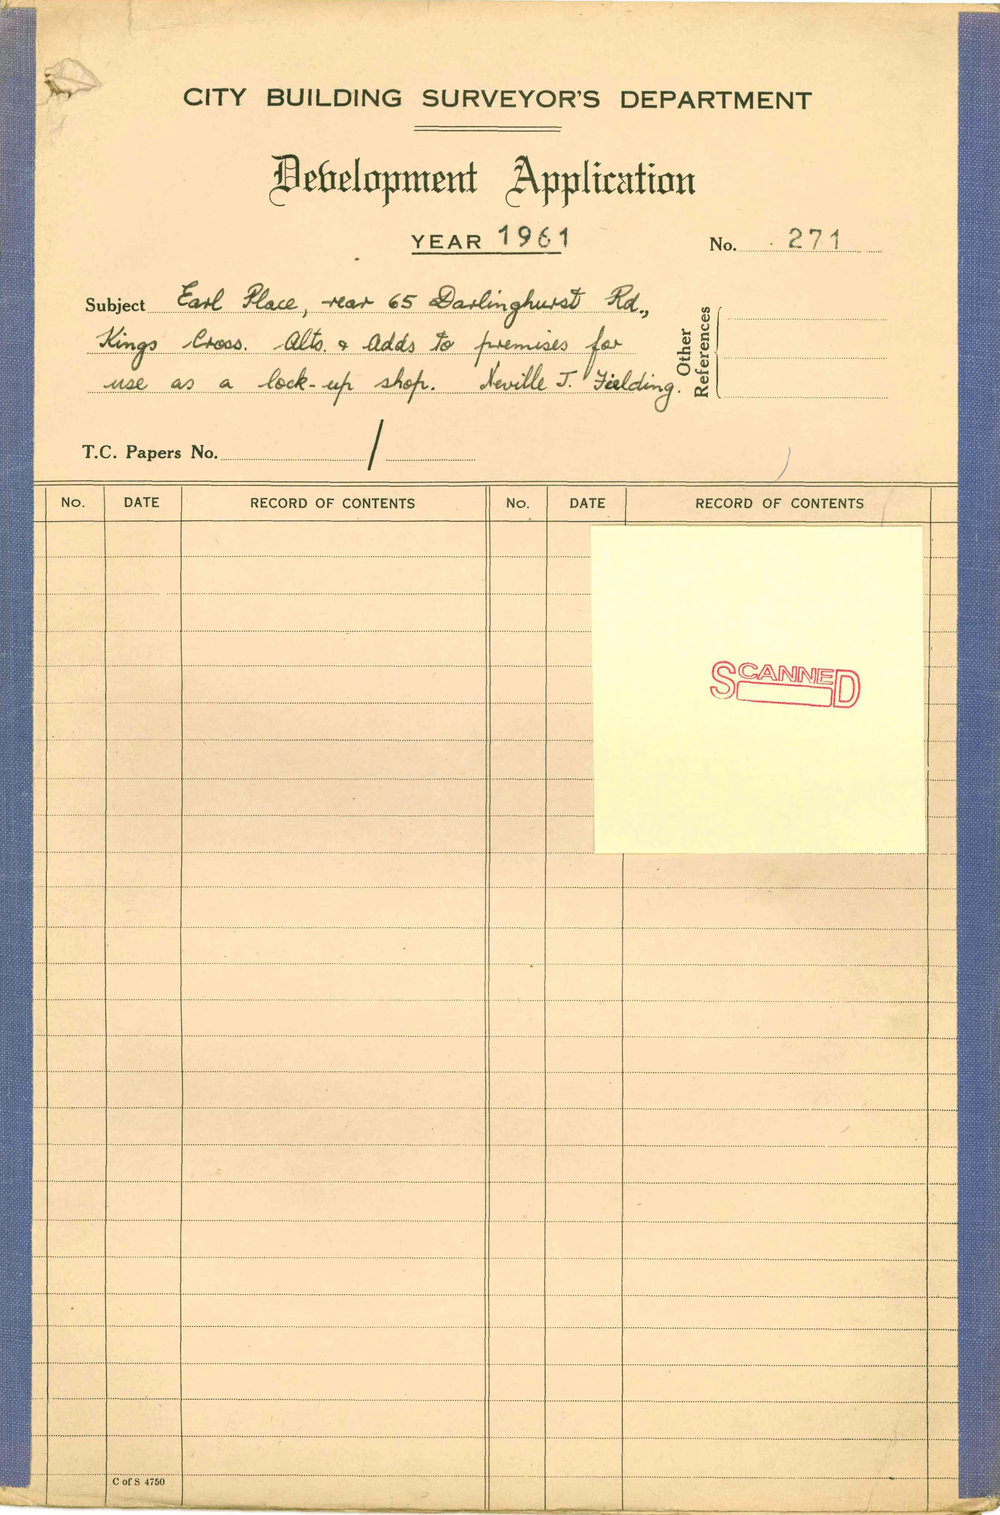 CITY BUILDING SURVEYOR'S DEPARTMENT
Development Application
YEAR 1961
No. 271
Subject Earl Place, rear 65 Darlinghurst Rd.,
Kings Cross. Alts. & Adds to premises for
use as a lock-up shop. Neville J. Fielding.
Other References
T.C. Papers No. /
No. DATE RECORD OF CONTENTS No. DATE RECORD OF CONTENTS
SCANNED
C of S 4750